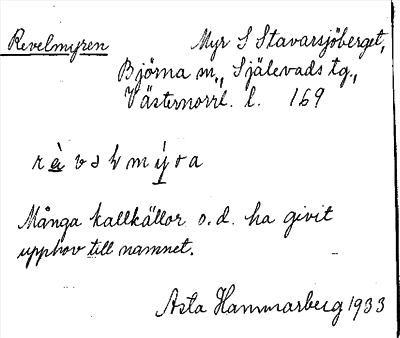 Revelmyren
Myr S Stavarsjöberget,
Björna sn., Själevads tg.,
Västernorrl. l. 169
Många kallkällor s.d. ha givit
upphov till namnet.
Asta Hammarberg 1933